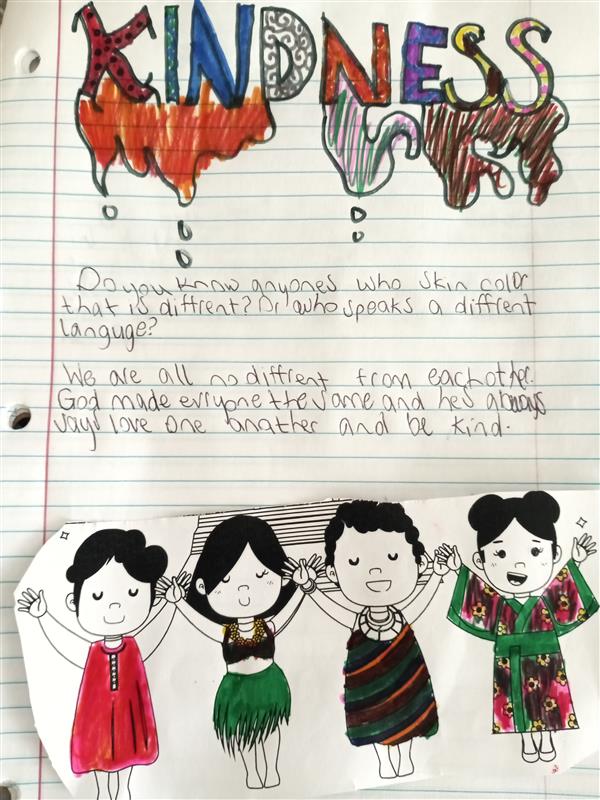 KINDNESS
Do you know anyones who skin color
that is diffrent? Or who speaks a diffrent
languge?
We are all no diffrent from eachother.
God made evryone the same and he's always
says love one anather and be kind.